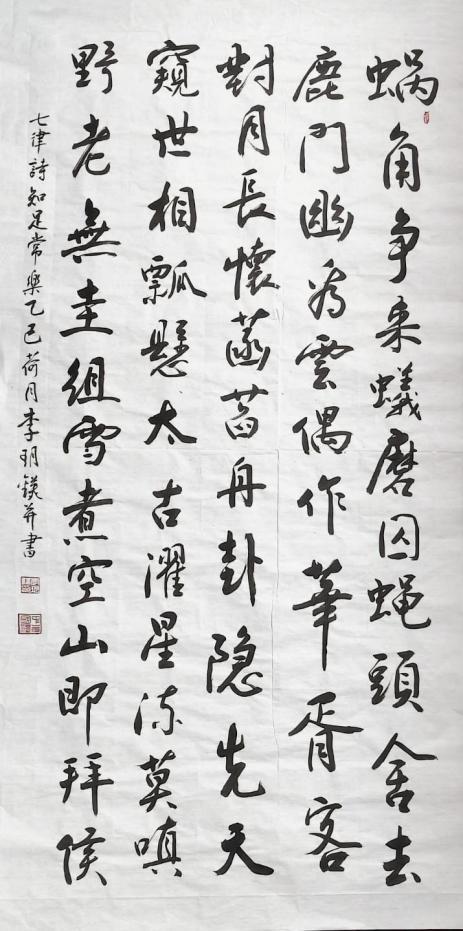 蜗角争来蟻磨囚蝇頭舍去
鹿門幽为雲偶作華胥客
對月長懷菡萏舟卦隐先天
窺世相瓢懸太古濯星流莫嗔
野老無圭組雪煮空山即拜侯
七律詩知足常樂乙巳荷月李玥并書